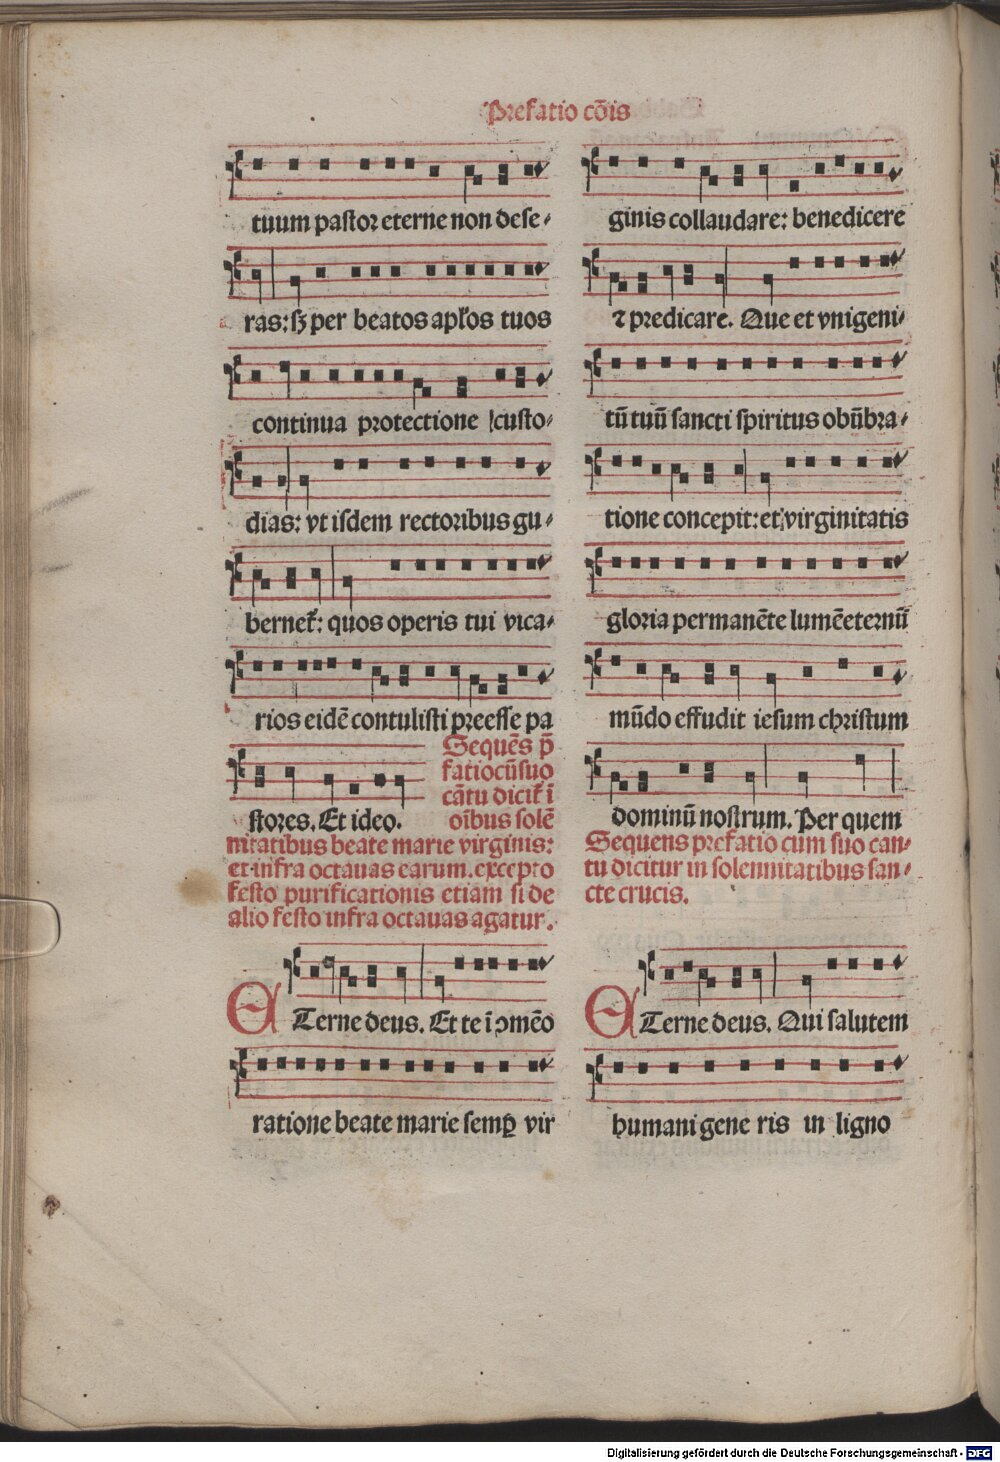 Prefatio cōis
tuum pastor eterne non dese⸗
ras: sȝ per beatos apl̄os tuos
continua protectione custo⸗
dias: vt isdem rectoribus gu⸗
bernet᷑: quos operis tui vica⸗
rios eidē contulisti preesse pa
stores. Et ideo.
Sequēs p̄
fatio cū suo
cātu dicit᷑ ī
oībus solē
nitatibus beate marie virginis:
et infra octauas earum. excepto
festo purificationis etiam si de
alio festo infra octauas agatur.
ETerne deus. Et te ī ↄmēo
ratione beate marie semꝑ vir
ginis collaudare: benedicere
⁊ predicare. Que et vnigeni⸗
tū tuū sancti spiritus obūbra⸗
tione concepit: et virginitatis
gloria permanēte lumē eternū
mūdo effudit iesum christum
dominū nostrum. Per quem
Sequens prefatio cum suo can⸗
tu dicitur in solennitatibus san⸗
cte crucis.
ETerne deus. Qui salutem
humani gene ris in ligno
Digitalisierung gefördert durch die Deutsche Forschungsgemeinschaft - DFG